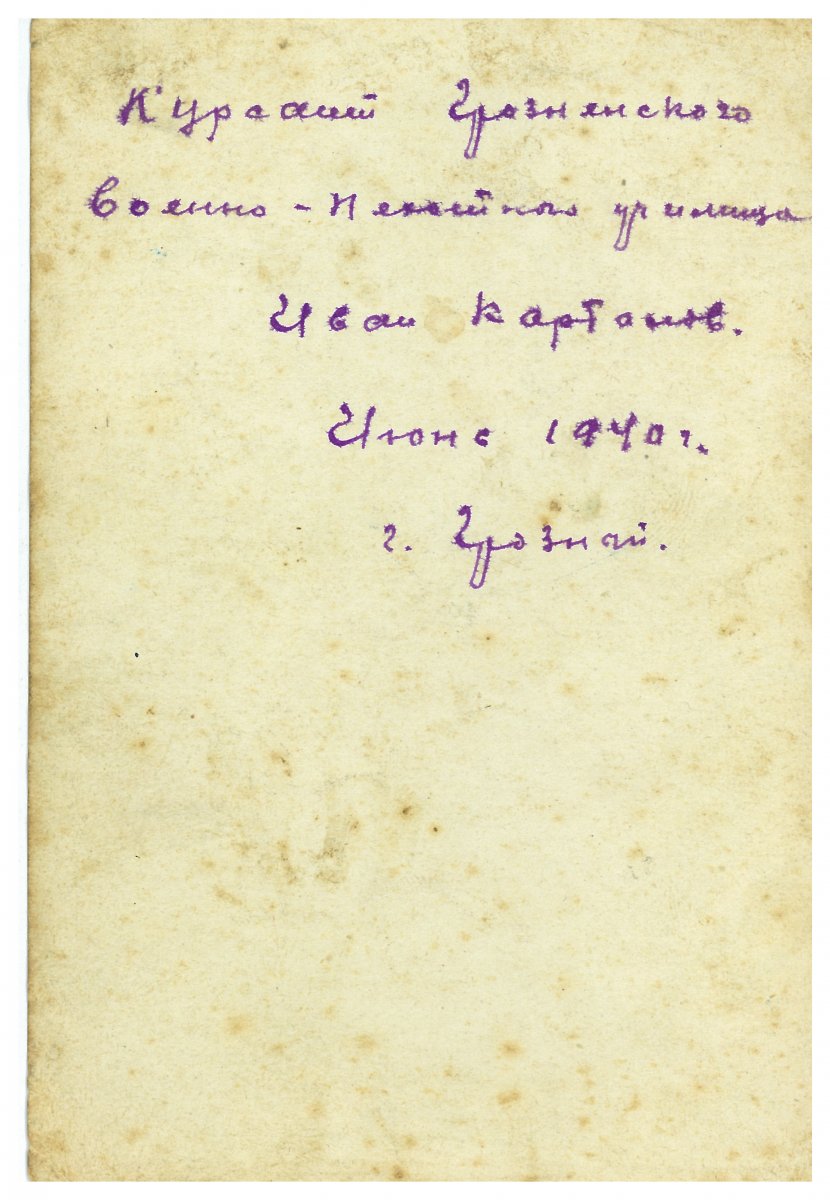 Курсант Грозненского
Военно-Пехотного училища
Иван Картонов.
Июнь 1940 г.
г. Грозный.